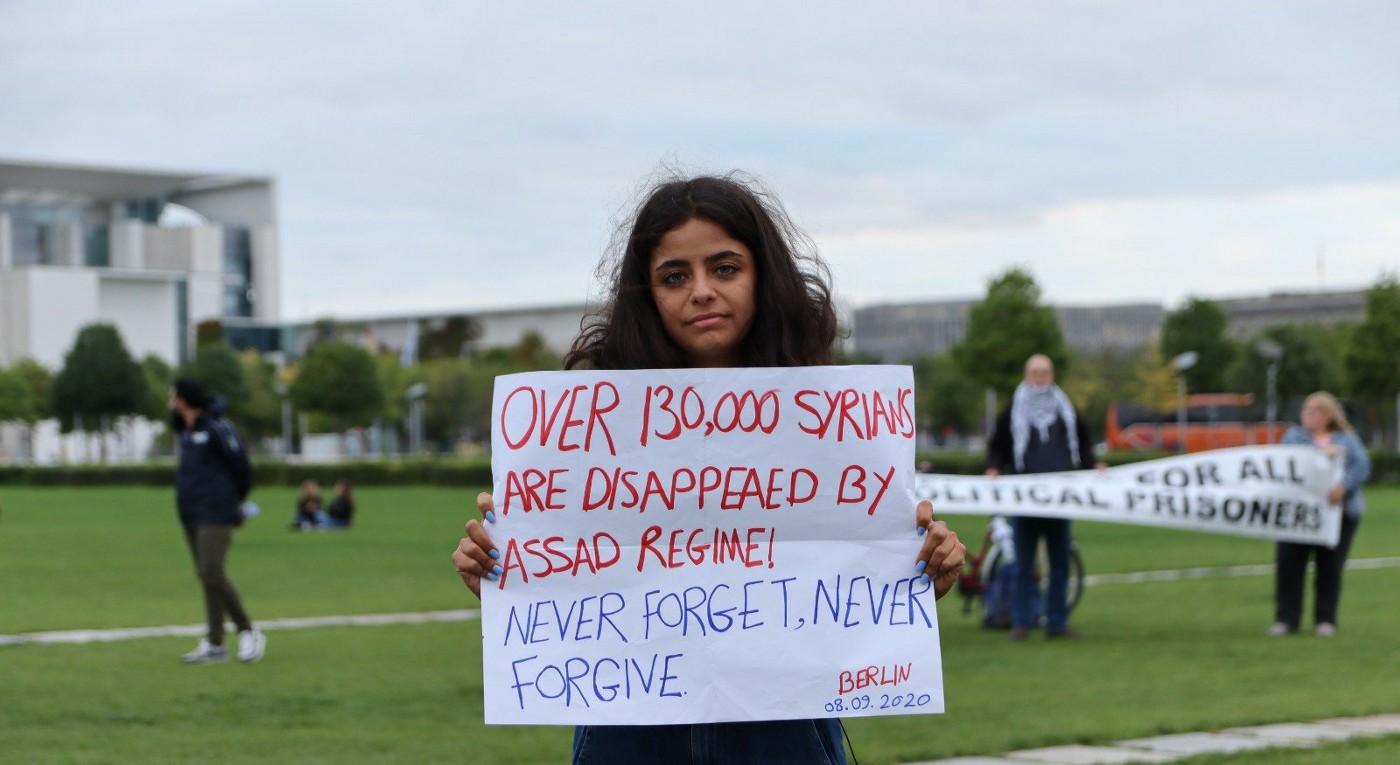 OVER 130,000 SYRIANS
ARE DISAPPEAED BY
ASSAD REGIME!
NEVER FORGET, NEVER
FORGIVE.
BERLIN
08.09.2020
FOR ALL
POLITICAL PRISONERS